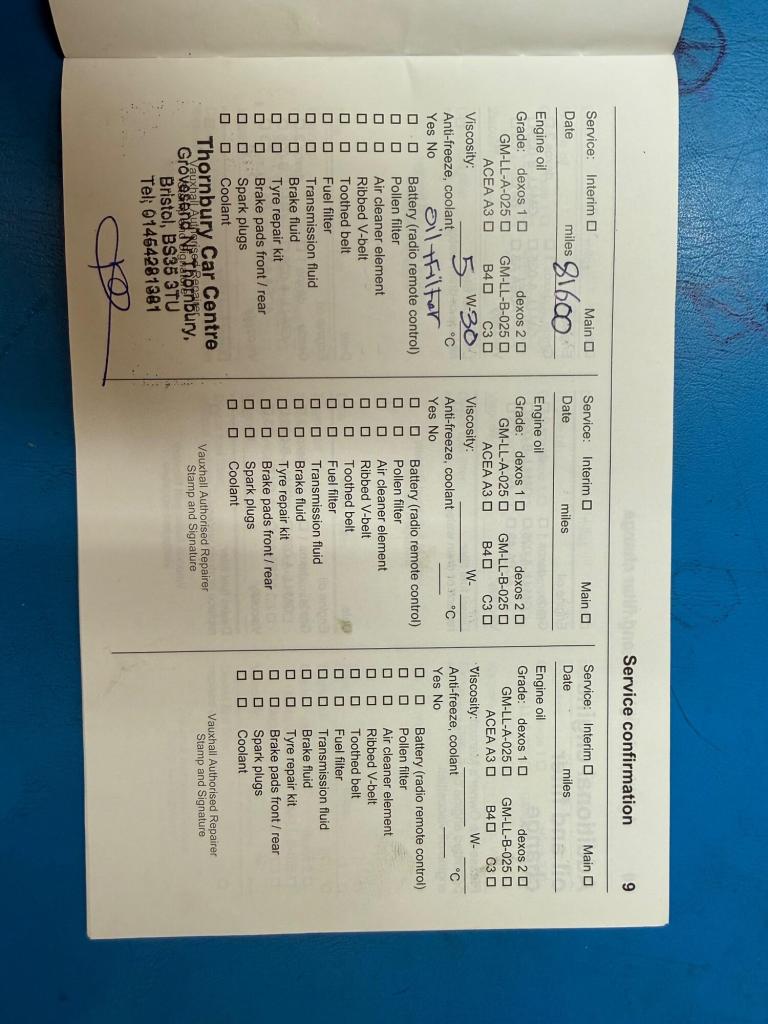 Service confirmation 9
Service: Interim ☐ Main ☐
Date miles 81600
Engine oil
Grade: dexos 1 ☐ dexos 2 ☐
GM-LL-A-025 ☐ GM-LL-B-025 ☐
ACEA A3 ☐ B4 ☐ C3 ☐
Viscosity: 5 W- 30
Anti-freeze, coolant °C
Yes No oil + Filter
☐ ☐ Battery (radio remote control)
☐ ☐ Pollen filter
☐ ☐ Air cleaner element
☐ ☐ Ribbed V-belt
☐ ☐ Toothed belt
☐ ☐ Fuel filter
☐ ☐ Transmission fluid
☐ ☐ Brake fluid
☐ ☐ Tyre repair kit
☐ ☐ Brake pads front / rear
☐ ☐ Spark plugs
☐ ☐ Coolant
Thornbury Car Centre
Vauxhall Authorised Repairer
Grovesend, N. Thornbury,
Bristol, BS35 3TU
Tel; 01454281381
Service: Interim ☐ Main ☐
Date miles
Engine oil
Grade: dexos 1 ☐ dexos 2 ☐
GM-LL-A-025 ☐ GM-LL-B-025 ☐
ACEA A3 ☐ B4 ☐ C3 ☐
Viscosity: W-
Anti-freeze, coolant °C
Yes No
☐ ☐ Battery (radio remote control)
☐ ☐ Pollen filter
☐ ☐ Air cleaner element
☐ ☐ Ribbed V-belt
☐ ☐ Toothed belt
☐ ☐ Fuel filter
☐ ☐ Transmission fluid
☐ ☐ Brake fluid
☐ ☐ Tyre repair kit
☐ ☐ Brake pads front / rear
☐ ☐ Spark plugs
☐ ☐ Coolant
Vauxhall Authorised Repairer
Stamp and Signature
Service: Interim ☐ Main ☐
Date miles
Engine oil
Grade: dexos 1 ☐ dexos 2 ☐
GM-LL-A-025 ☐ GM-LL-B-025 ☐
ACEA A3 ☐ B4 ☐ C3 ☐
Viscosity: W-
Anti-freeze, coolant °C
Yes No
☐ ☐ Battery (radio remote control)
☐ ☐ Pollen filter
☐ ☐ Air cleaner element
☐ ☐ Ribbed V-belt
☐ ☐ Toothed belt
☐ ☐ Fuel filter
☐ ☐ Transmission fluid
☐ ☐ Brake fluid
☐ ☐ Tyre repair kit
☐ ☐ Brake pads front / rear
☐ ☐ Spark plugs
☐ ☐ Coolant
Vauxhall Authorised Repairer
Stamp and Signature